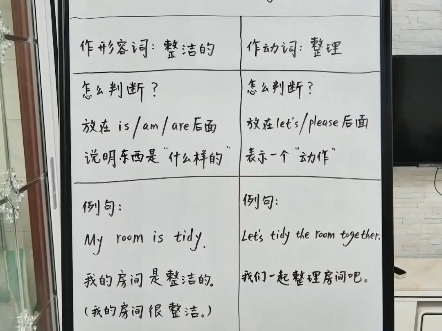 作形容词：整洁的
作动词：整理
怎么判断？
放在 is/am/are后面
说明东西是“什么样的”
怎么判断？
放在let's/please后面
表示一个“动作”
例句：
My room is tidy.
我的房间是整洁的。
(我的房间很整洁。)
例句：
Let's tidy the room together.
我们一起整理房间吧。